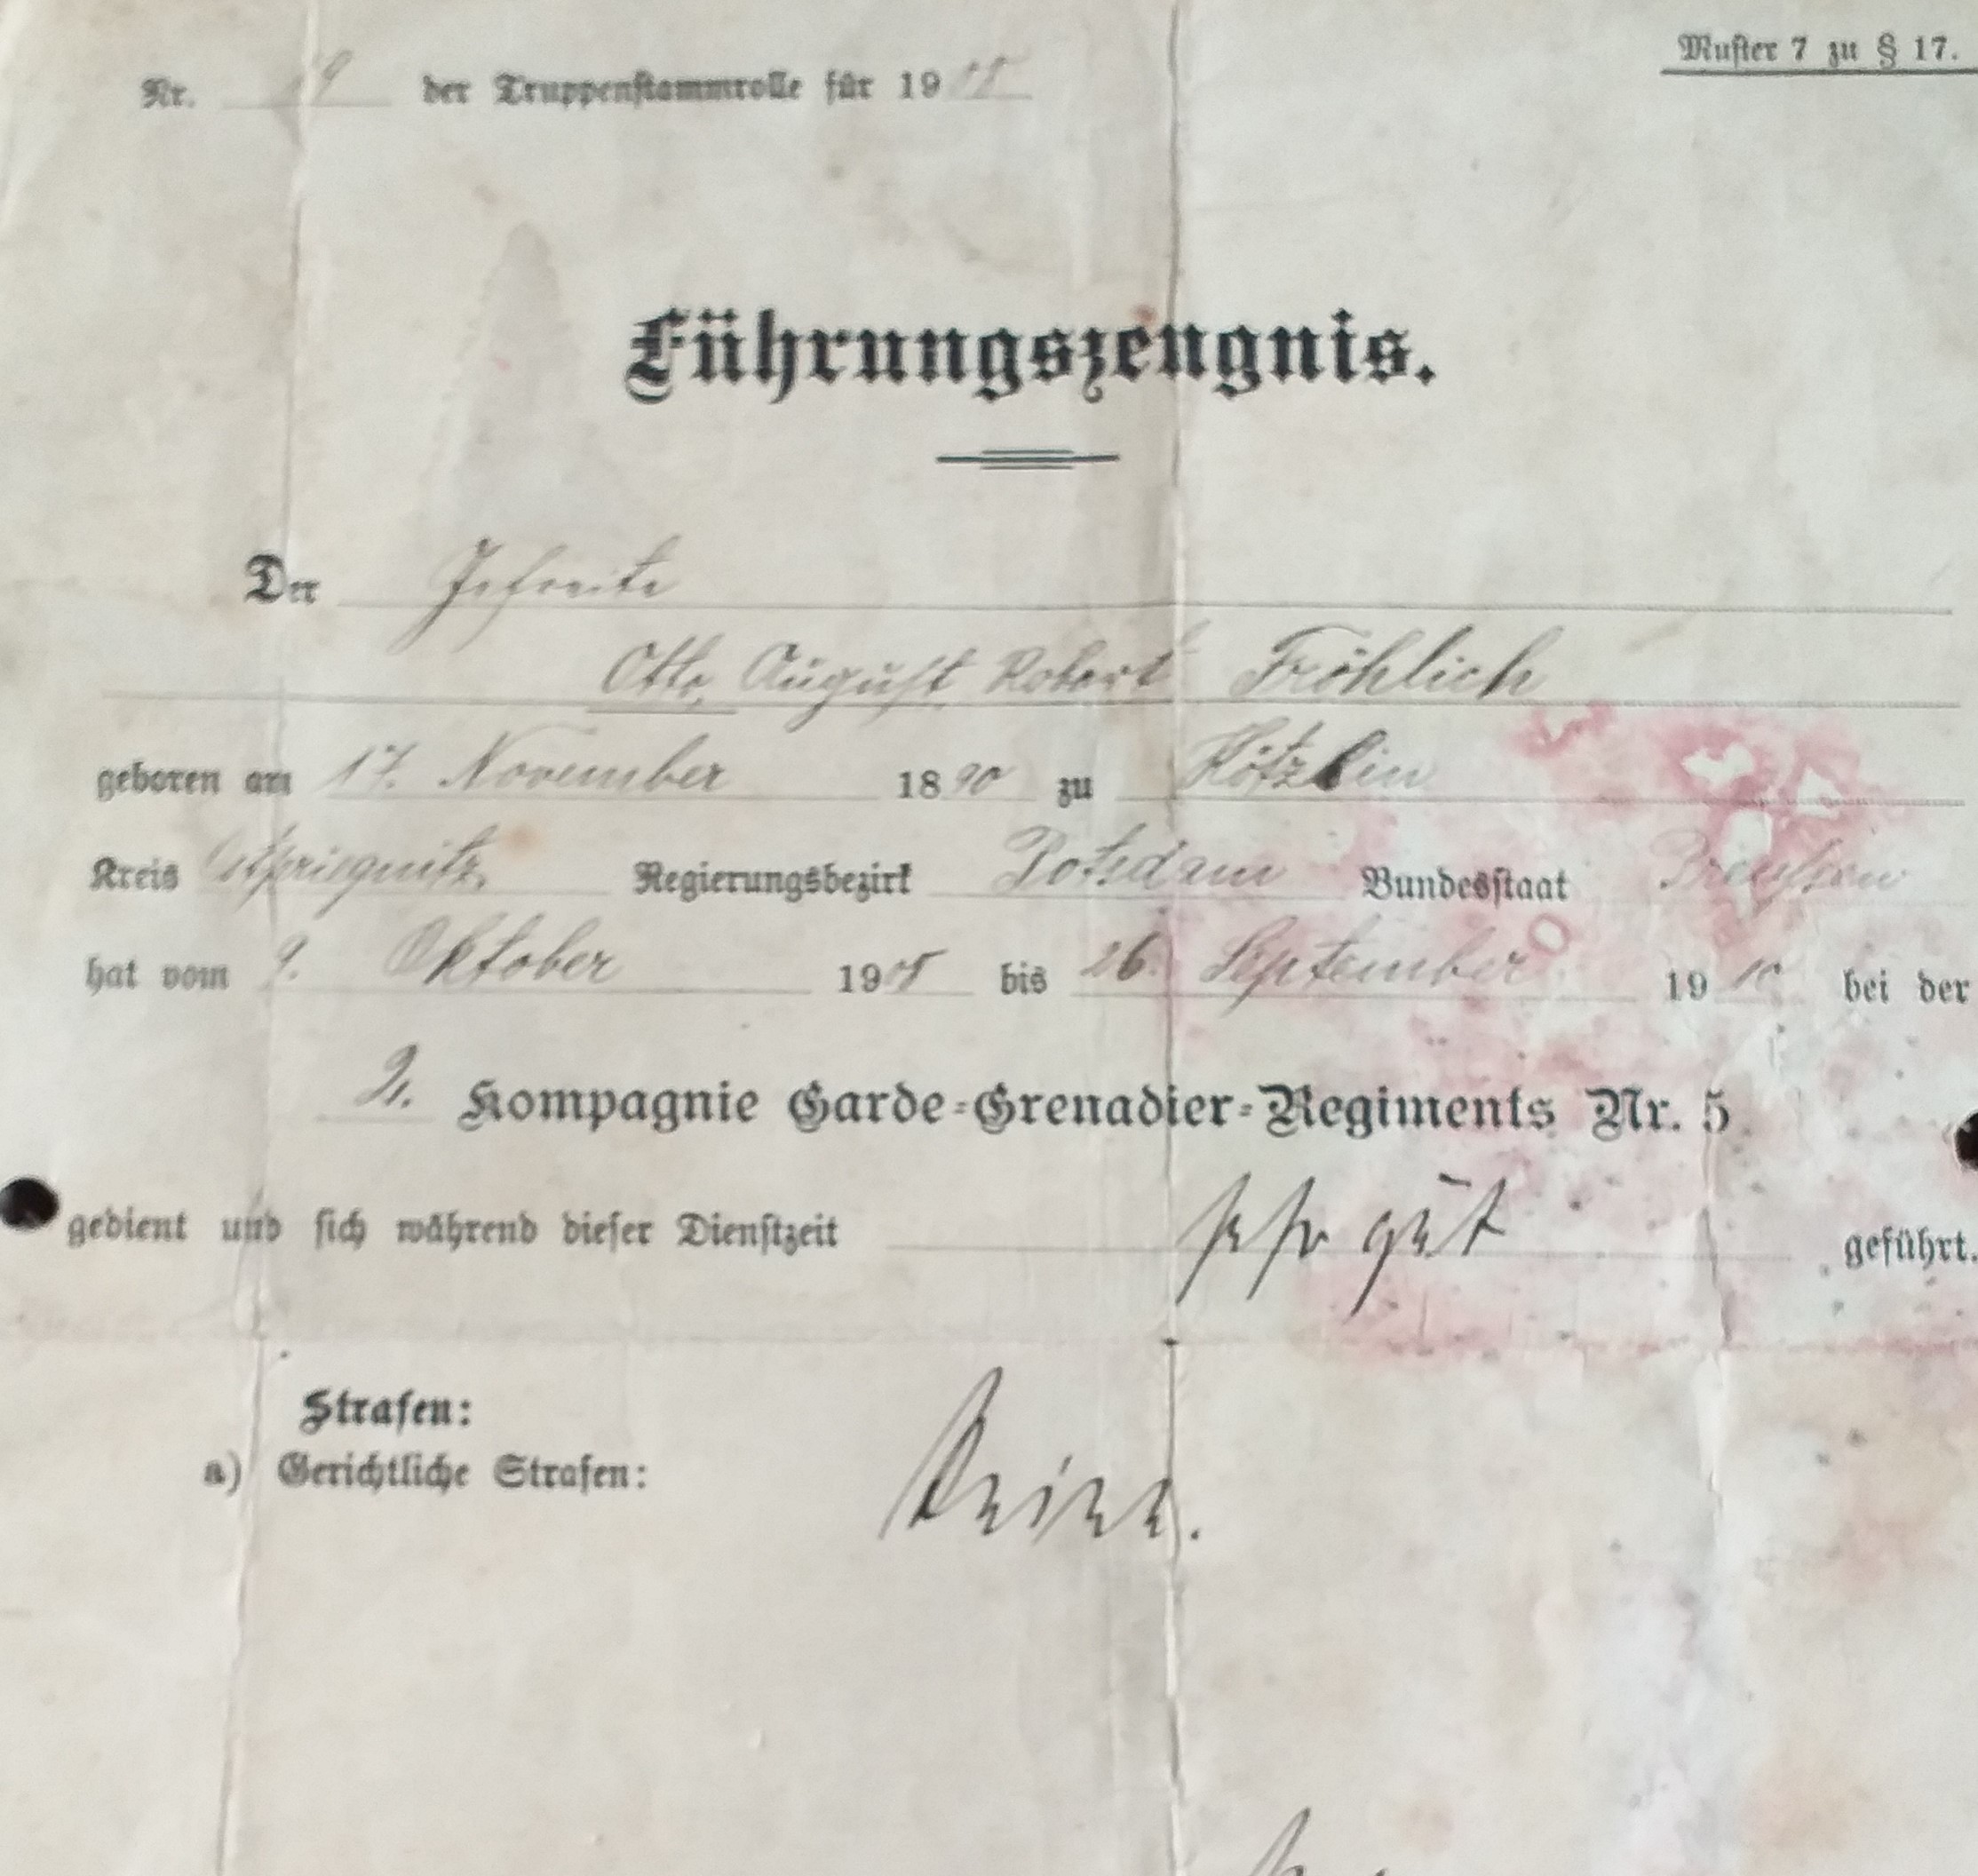 Muster 7 zu § 17.
Nr. 19 der Truppenstammrolle für 1908
Führungszeugnis.
Der Gefreite
Otto, August, Robert Fröhlich
geboren am 17. November 1890 zu Kötzlin
Kreis Ostpriegnitz, Regierungsbezirk Potsdam Bundesstaat Preußen
hat vom 9. Oktober 1908 bis 26. September 1910 bei der
2. Kompagnie Garde-Grenadier-Regiments Nr. 5
gedient und sich während dieser Dienstzeit sehr gut geführt.
Strafen:
a) Gerichtliche Strafen: Keine.